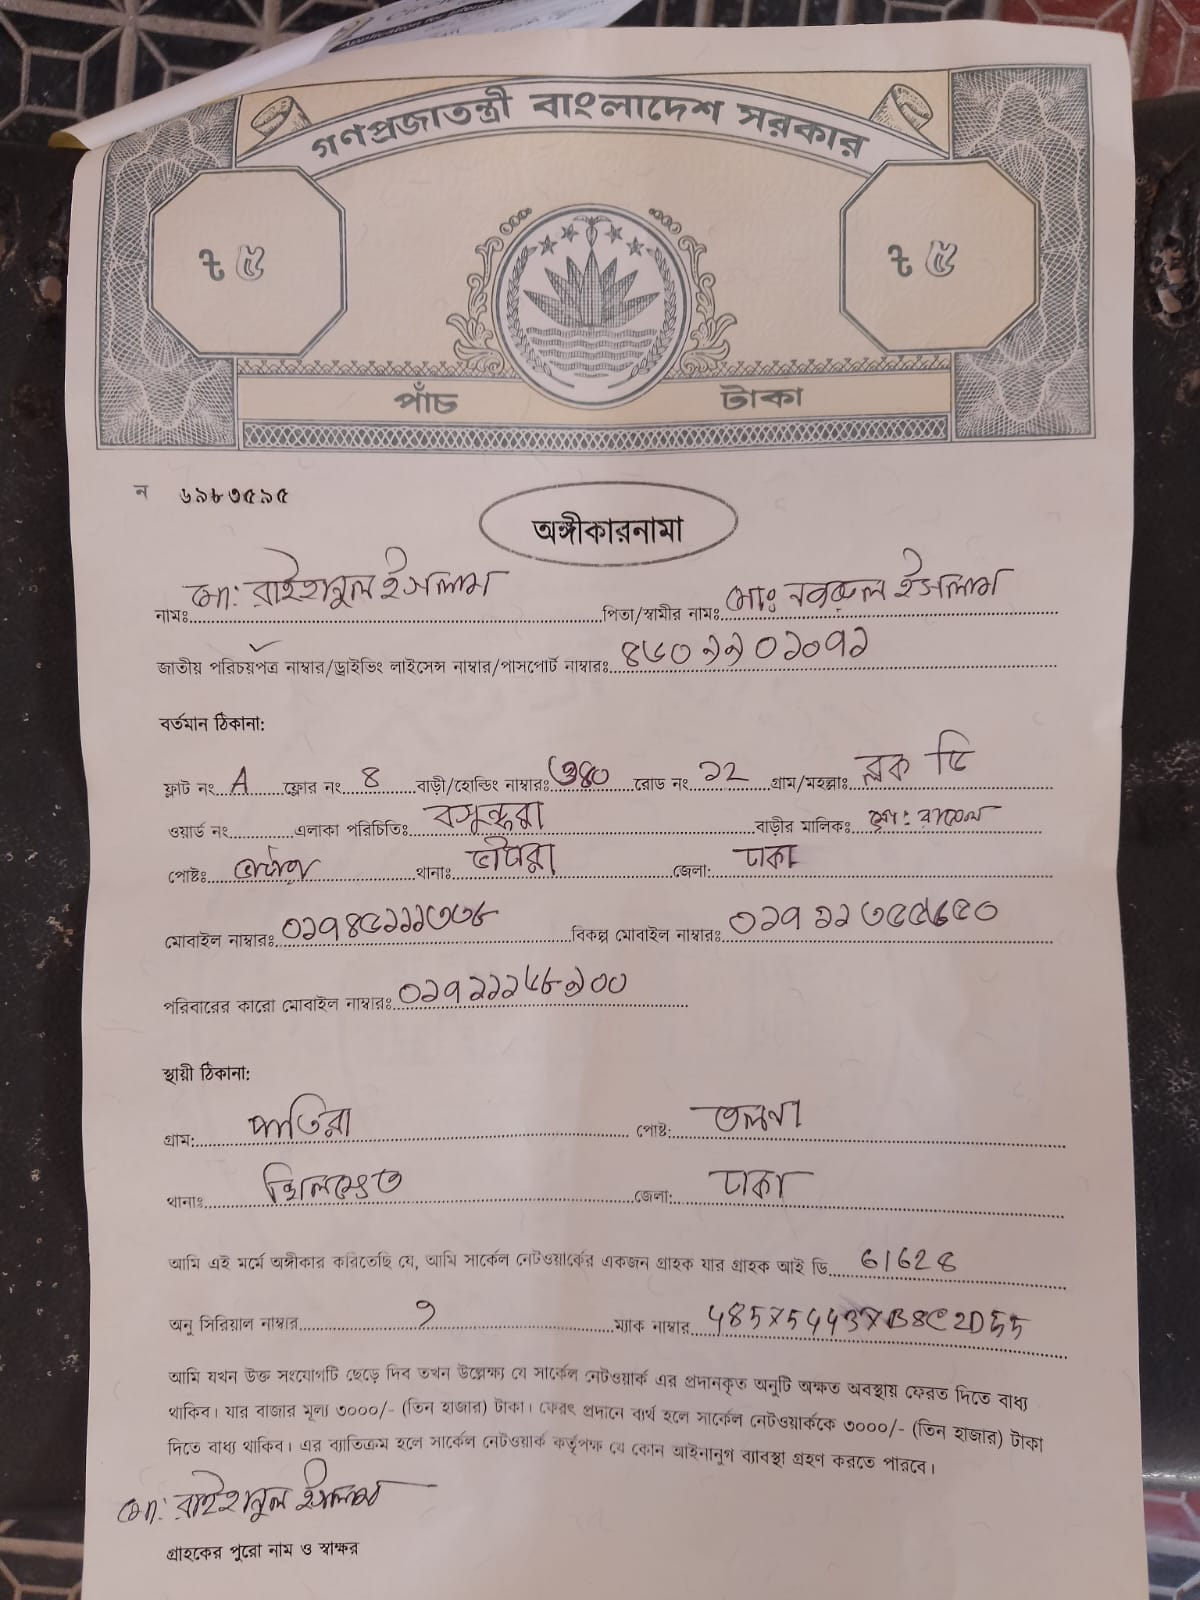 গণপ্রজাতন্ত্রী বাংলাদেশ সরকার
৳ ৫ ৳ ৫
পাঁচ টাকা
ন ৬৯৮৩৫৯৫
অঙ্গীকারনামা
নামঃ মো: রাইহানুল ইসলাম পিতা/স্বামীর নামঃ মোঃ নজরুল ইসলাম
জাতীয় পরিচয়পত্র নাম্বার/ড্রাইভিং লাইসেন্স নাম্বার/পাসপোর্ট নাম্বারঃ ৪৬০৯৯০১০৭১
বর্তমান ঠিকানা:
ফ্লাট নং A ফ্লোর নং 8 বাড়ী/হোল্ডিং নাম্বারঃ ৩৪০ রোড নং ১২ গ্রাম/মহল্লাঃ ব্লক ডি
ওয়ার্ড নং এলাকা পরিচিতিঃ বসুন্ধরা বাড়ীর মালিকঃ
পোষ্টঃ থানাঃ ভাটারা জেলা: ঢাকা
মোবাইল নাম্বারঃ ০১৭৪৫১১১৩৩৮ বিকল্প মোবাইল নাম্বারঃ
পরিবারের কারো মোবাইল নাম্বারঃ
স্থায়ী ঠিকানা:
গ্রাম: পাতিরা পোষ্ট: তলনা
থানাঃ খিলক্ষেত জেলা: ঢাকা
আমি এই মর্মে অঙ্গীকার করিতেছি যে, আমি সার্কেল নেটওয়ার্কের একজন গ্রাহক যার গ্রাহক আই ডি 61628
অনু সিরিয়াল নাম্বার ম্যাক নাম্বার
আমি যখন উক্ত সংযোগটি ছেড়ে দিব তখন উল্লেক্ষ্য যে সার্কেল নেটওয়ার্ক এর প্রদানকৃত অনুটি অক্ষত অবস্থায় ফেরত দিতে বাধ্য
থাকিব। যার বাজার মূল্য ৩০০০/- (তিন হাজার) টাকা। ফেরৎ প্রদানে ব্যর্থ হলে সার্কেল নেটওয়ার্ককে ৩০০০/- (তিন হাজার) টাকা
দিতে বাধ্য থাকিব। এর ব্যাতিক্রম হলে সার্কেল নেটওয়ার্ক কর্তৃপক্ষ যে কোন আইনানুগ ব্যাবস্থা গ্রহণ করতে পারবে।
মো: রাইহানুল ইসলাম
গ্রাহকের পুরো নাম ও স্বাক্ষর